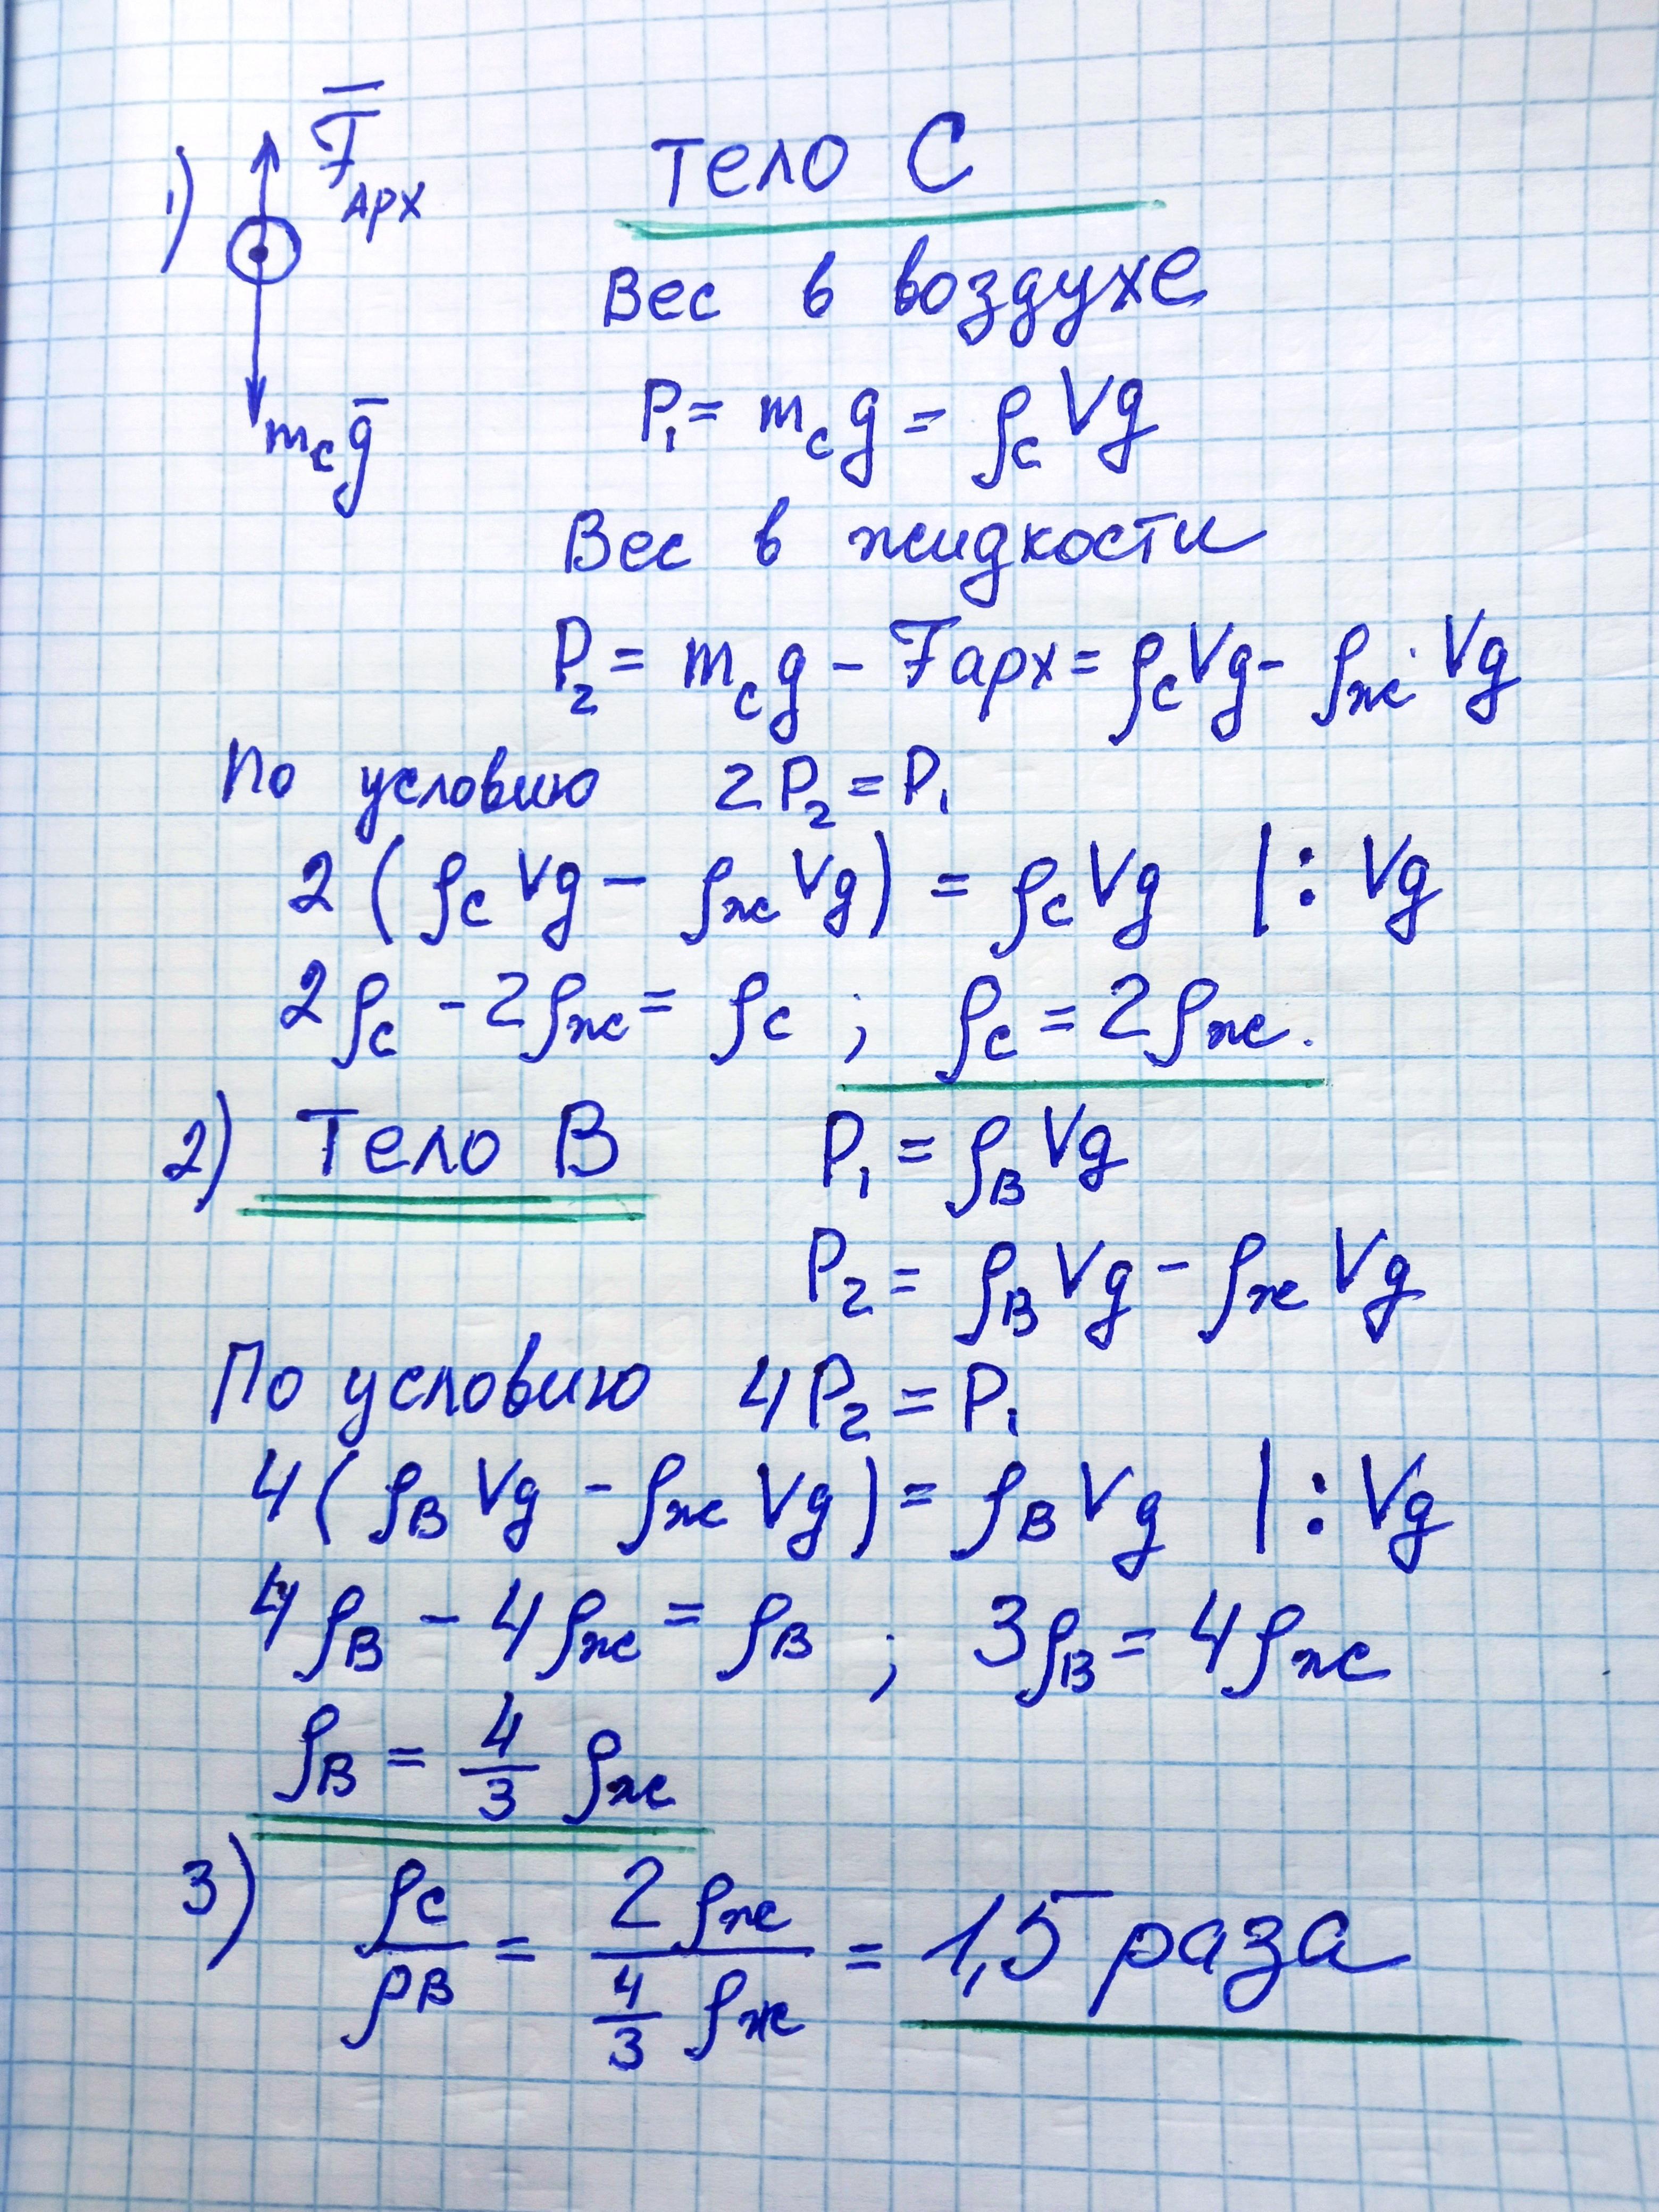 1) F̅арх
Тело С
mс g̅
Вес в воздухе
P₁ = mс g = ρс Vg
Вес в жидкости
P₂ = mс g - Fарх = ρс Vg - ρж · Vg
По условию 2P₂ = P₁
2 (ρс Vg - ρж Vg) = ρс Vg | : Vg
2ρс - 2ρж = ρс ; ρс = 2ρж.
2) Тело В P₁ = ρв Vg
P₂ = ρв Vg - ρж Vg
По условию 4P₂ = P₁
4 (ρв Vg - ρж Vg) = ρв Vg | : Vg
4ρв - 4ρж = ρв ; 3ρв = 4ρж
ρв = 4/3 ρж
3) ρс/ρв = 2ρж / (4/3 ρж) = 1,5 раза